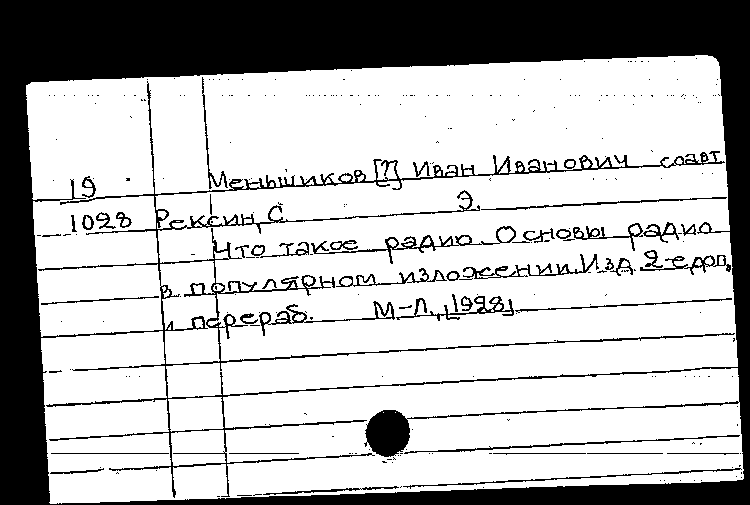 19 Меньшиков [?] Иван Иванович соавт
1028 Рексин, С Э.
Что такое радио. Основы радио
в популярном изложении. Изд. 2-е доп.
и перераб. М-Л., [1928]